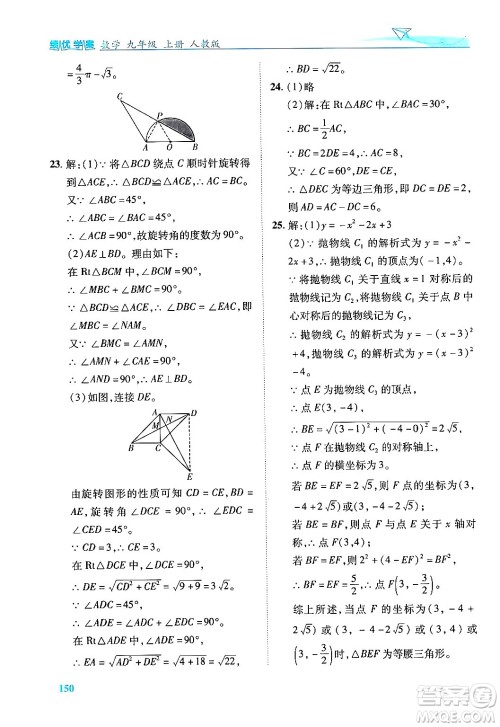 绩优学案 数学 九年级 上册 人教版
=4/3π-√3.
C
P
A O B
23. 解:(1)∵将△BCD绕点C顺时针旋转得
到△ACE,∴△ACE≌△BCD.
又∵∠ABC=45°,
∴∠ABC=∠BAC=45°.
∴∠ACB=90°,故旋转角的度数为90°.
(2)AE⊥BD.理由如下:
在Rt△BCM中,∠BCM=90°,
∴∠MBC+∠BMC=90°.
∵△ACE≌△BCD,∴∠DBC=∠EAC,
即∠MBC=∠NAM.
又∵∠BMC=∠AMN,
∴∠AMN+∠CAE=90°.
∴∠AND=90°,∴AE⊥BD.
(3)如图,连接DE.
A D
M N
B C
E
由旋转图形的性质可知CD=CE,BD=
AE,旋转角∠DCE=90°,∴∠EDC=
∠CED=45°.
∵CD=3,∴CE=3.
在Rt△DCE中,∠DCE=90°,
∴DE=√(CD²+CE²)=√(9+9)=3√2.
∵∠ADC=45°,
∴∠ADE=∠ADC+∠EDC=90°.
在Rt△ADE中,∠ADE=90°,
∴EA=√(AD²+DE²)=√(4+18)=√22.
150
∴BD=√22.
24. (1)略
(2)解:∵在Rt△ABC中,∠BAC=30°,
∴BC=1/2AC=EC.
又∵∠C=60°,DE=EC,
∴△DEC为等边三角形,
∴AD=AC-DC=6.
25. 解:(1)y=-x²-2x+3
(2)∵抛物线C₁的解析式为y=-x²-
2x+3,∴抛物线C₁的顶点为(-1,4).
∵将抛物线C₁关于直线x=1对称后的
抛物线记为C₂,将抛物线C₁关于点B中
心对称后的抛物线记为C₃,
∴抛物线C₂的解析式为y=-(x-3)²+
4,抛物线C₃的解析式为y=(x-3)²-4.
∵点E为抛物线C₃的顶点,
∴点E的坐标为(3,-4).
∴BE=√((3-1)²+(-4-0)²)=2√5.
∵点F在抛物线C₂的对称轴上,
∴点F的横坐标为3.
若BE=EF=2√5,则点F的坐标为(3,
-4+2√5)或(3,-4-2√5).
若BE=BF,则点E与点F关于x轴对
称,∴点F的坐标为(3,4).
若BF=EF,则BF²=4+(4-EF)²,
∴BF=EF=5/2,∴点F的坐标为(3,-3/2).
综上所述,当点F的坐标为(3,-4+
2√5)或(3,-4-2√5)或(3,4)或
(3,-3/2)时,△BEF为等腰三角形.